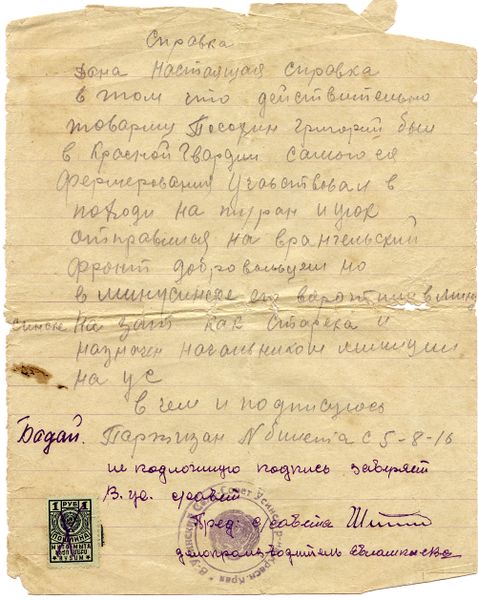 Справка
дана настоящая справка
в том что действительно
товарищ Посохин Григорий был
в Красной Гвардии самого ея
формерования Учавствовал в
походи на туран и уюк
отправился на врангельский
фронт добровольцем но
в минусинске его вароти в мину
синске на зать как старека и
назначен начальником милиции
на ус
в чем и подписуюсь
Бадай. Партизан № билета с 5-8-16
неподложную подпись заверяет
В. ус. с/совет
Пред. с/совета
делопроизводитель
1 РУБ 1
ПОШЛИНА